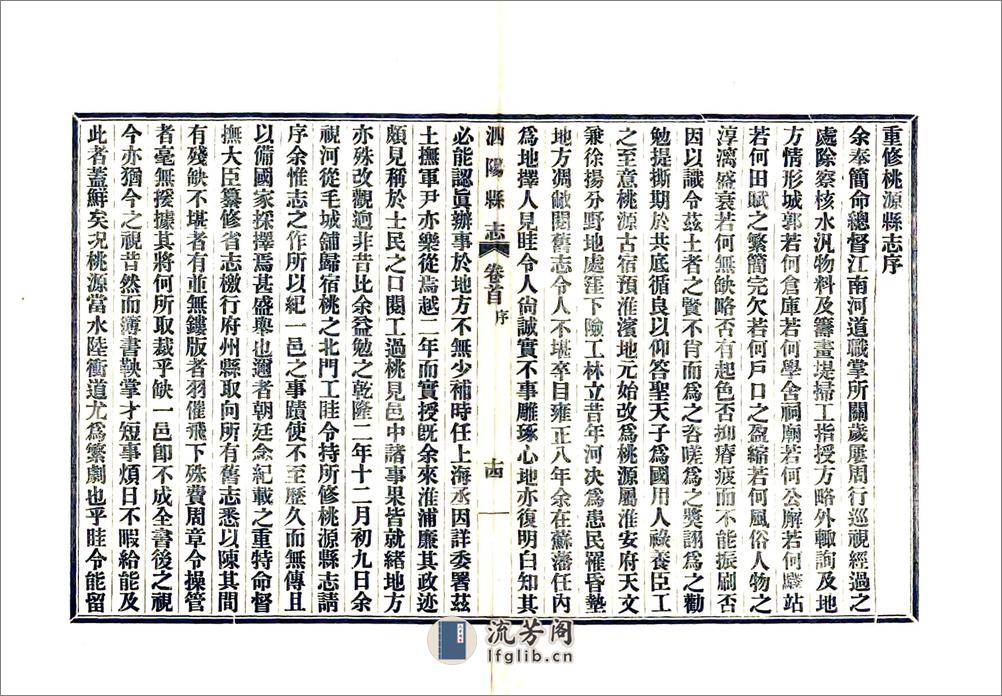 重修桃源縣志序
余奉簡命總督江南河道職掌所關歲屢周行巡視經過之
處除察核水汛物料及籌畫堤掃工指授方略外輙詢及地
方情形城郭若何倉庫若何學舍祠廟若何公廨若何驛站
若何田賦之繁簡完欠若何戶口之盈縮若何風俗人物之
淳漓盛衰若何無缺略否有起色否抑瘠疲而不能振刷否
因以識令茲土者之賢不肖而為之咨嗟為之獎詡為之勸
勉提撕期於共底循良以仰答聖天子為國用人祿養臣工
之至意桃源古宿預淮濱地元始改為桃源屬淮安府天文
兼徐揚分野地處窪下險工林立昔年河決為患民罹昏墊
地方凋敝閱舊志令人不堪卒目雍正八年余在蘇藩任內
為地擇人見眭令人尙誠實不事雕琢心地亦復明白知其
泗陽縣志 卷首 序 十四
必能認眞辦事於地方不無少補時任上海丞因詳委署茲
土撫軍尹亦樂從焉越二年而實授旣余來淮浦廉其政迹
頗見稱於士民之口閱工過桃見邑中諸事果皆就緒地方
亦殊改觀迥非昔比余益勉之乾隆二年十二月初九日余
視河從毛城鋪歸宿桃之北門工眭令持所修桃源縣志請
序余惟志之作所以紀一邑之事蹟使不至歷久而無傳且
以備國家採擇焉甚盛舉也邇者朝廷念紀載之重特命督
撫大臣纂修省志檄行府州縣取向所有舊志悉以陳其間
有殘缺不堪者有並無鏤版者羽催飛下殊費周章令操管
者毫無援據其將何所取裁乎缺一邑卽不成全書後之視
今亦猶今之視昔然而簿書鞅掌才短事煩日不暇給能及
此者蓋鮮矣况桃源當水陸衝道尤為繁劇也乎眭令能留
流芳阁
lfglib.cn